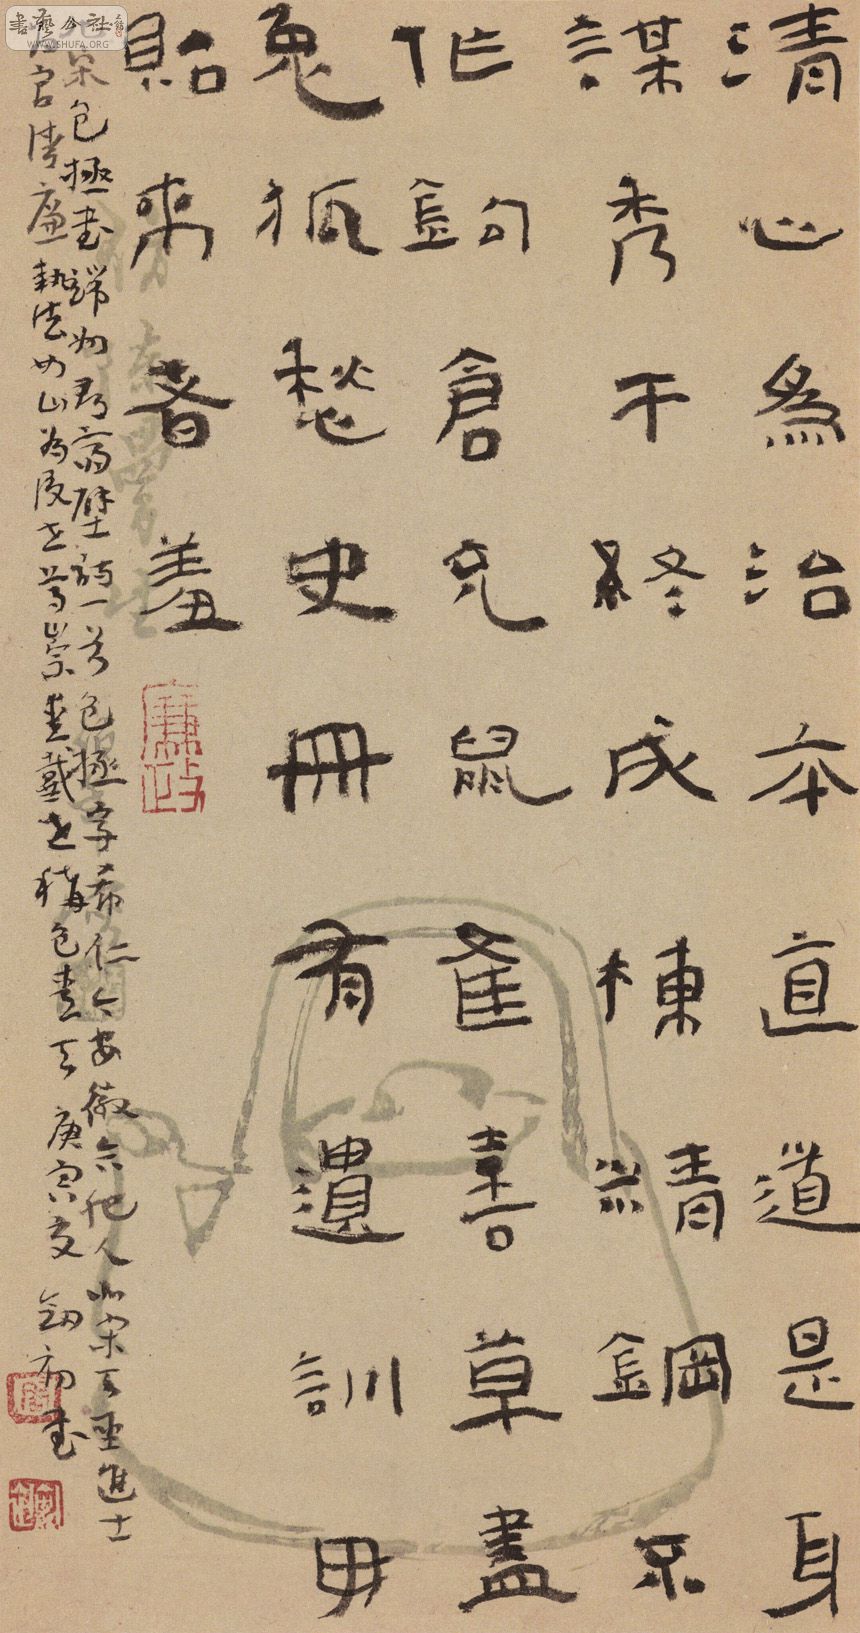 書藝公社
WWW.SHUFA.ORG
清心為治本直道是身
謀秀干終成棟精鋼不
作鉤倉充鼠雀喜草盡
兔狐愁史冊有遺訓毋
貽來者羞
廉政
宋包拯書端州郡齋壁詩一首包拯字希仁今安徽合肥人北宋天聖進士
官清廉執法如山為後世尊崇愛戴世稱包青天庚寅夏劍初書